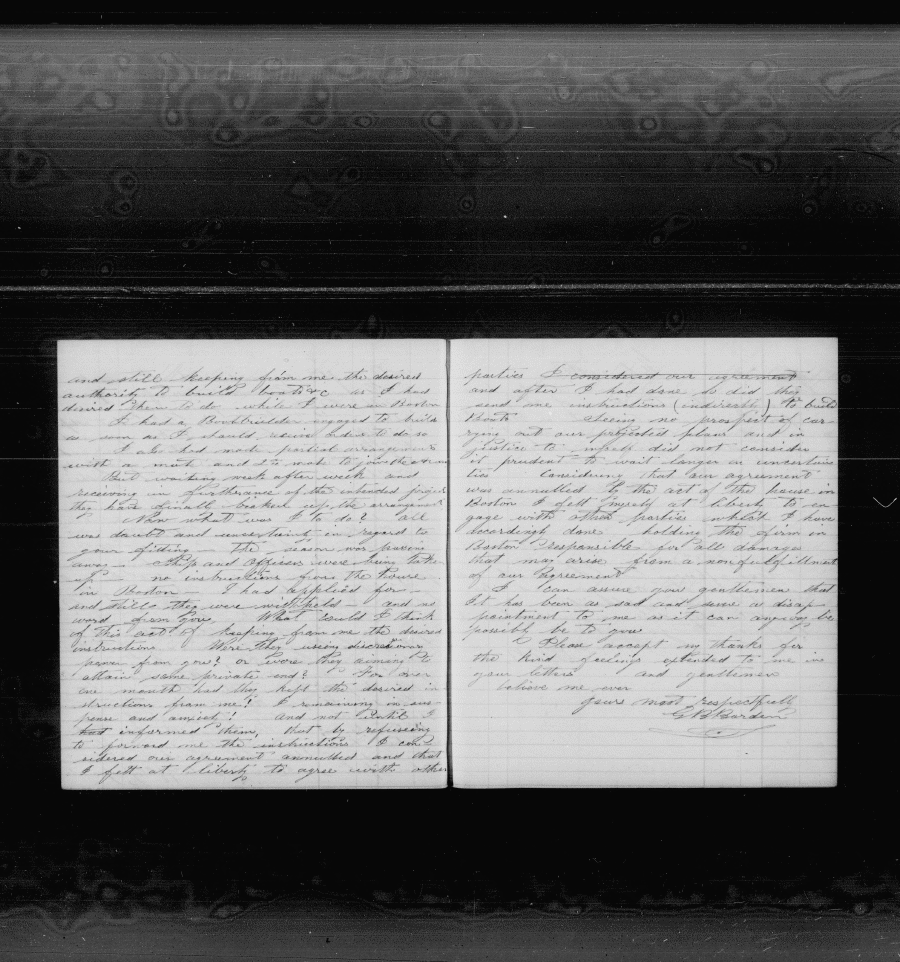 and still keeping from me the desired
authority to build boats &c as I had
desired them to do while I were in Boston
I had a Boatbuilder engaged to build
as soon as I should receive orders to do so
I also had made partial arrangements
with a mate and 2nd mate to join the
But waiting week after week and
receiving in furtherance of the intended project
they have finally broken up the arrangement
Now what was I to do? all
was doubt and uncertainty in regard to
your fitting — the season was passing
away — Ship and officers were being taken
up no instructions from the house
in Boston I had applied for —
and still they were withheld — and no
word from you What could I think
of this act of keeping from me the desired
instructions Were they using discretionary
power from you? or were they aiming to
attain some private end? For over
one month had they kept the desired in-
structions from me! I remaining in sus-
pense and anxiety! and not until I
had informed them, that by refuseing
to forward me the instructions I con-
sidered our agreement annulled and that
I felt at liberty to agree with other
parties I considered our agreement
and after I had done so did they
send me instructions (indirectly) to build
Boats Seeing no prospect of car-
rying out our projected plans and in
justice to myself did not consider
it prudent to wait longer in uncertain-
ties Considering that our agreement
was annulled by the act of the house in
Boston I felt myself at liberty to en-
gage with other parties which I have
accordingly done holding the firm in
Boston responsible for all damages
that may arise from a nonfulfillment
of our Agreement
I can assure you gentlemen that
It has been as sad and severe a disap-
pointment to me as it can anyway be
possibly be to you
Please accept my thanks for
the kind feelings extended to me in
your letters and gentlemen
believe me ever
yours most respectfully
G B Borden